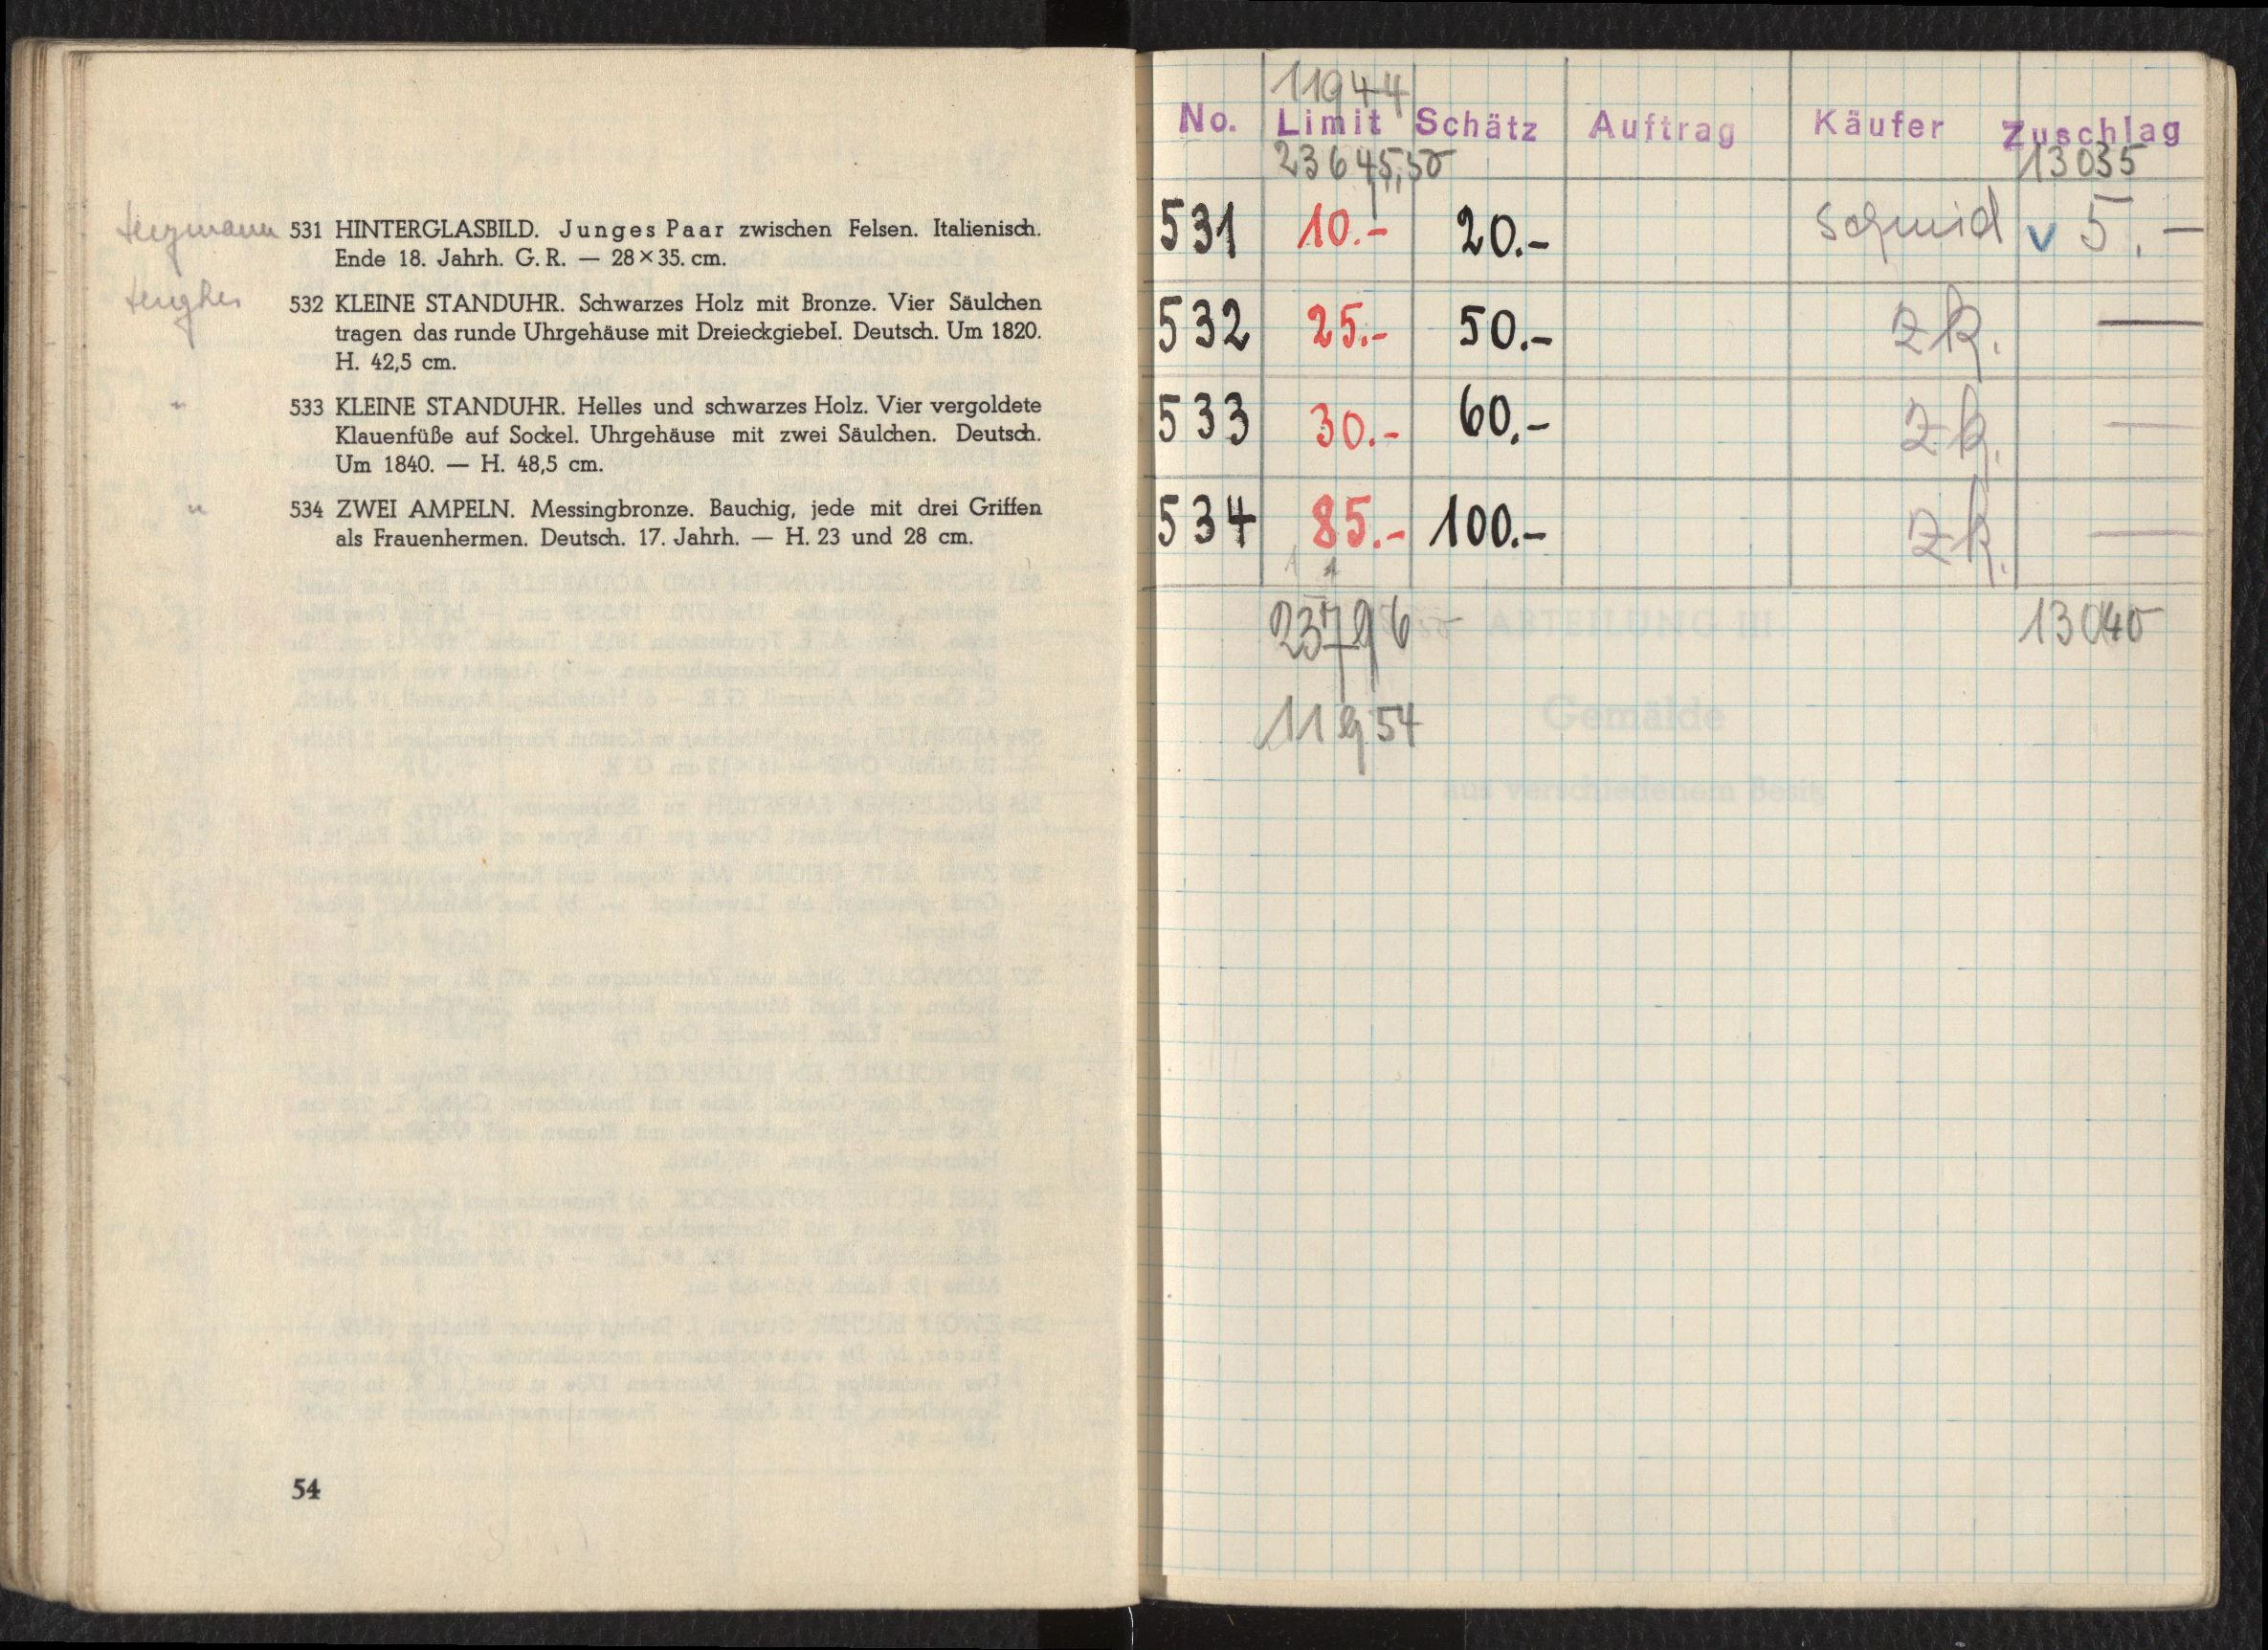 531 HINTERGLASBILD. Junges Paar zwischen Felsen. Italienisch.
Ende 18. Jahrh. G. R. — 28×35. cm.
532 KLEINE STANDUHR. Schwarzes Holz mit Bronze. Vier Säulchen
tragen das runde Uhrgehäuse mit Dreieckgiebel. Deutsch. Um 1820.
H. 42,5 cm.
533 KLEINE STANDUHR. Helles und schwarzes Holz. Vier vergoldete
Klauenfüße auf Sockel. Uhrgehäuse mit zwei Säulchen. Deutsch.
Um 1840. — H. 48,5 cm.
534 ZWEI AMPELN. Messingbronze. Bauchig, jede mit drei Griffen
als Frauenhermen. Deutsch. 17. Jahrh. — H. 23 und 28 cm.
54
11944
No. Limit Schätz Auftrag Käufer Zuschlag
23645,50 13035
531 10.- 20.- Schmid v 5.—
532 25.- 50.- zk. —
533 30.- 60.- zk. —
534 85.- 100.- zk. —
23796 13040
11954
ABTEILUNG III
Gemälde
aus verschiedenem Besitz